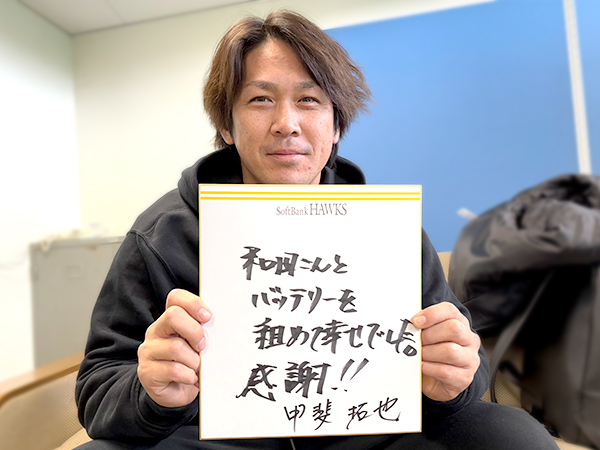 SoftBank HAWKS
和田さんと
バッテリーを
組めて幸せでした。
感謝!!
甲斐 拓也